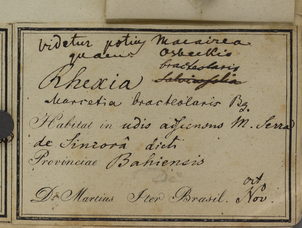 videtur potius Macairea
quam Osbeckia
bracteolaris
Rhexia salviaefolia
Marcetia bracteolaris Bg.
Habitat in udis adscensus M. Serra
de Sincorá dicti
Provinciae Bahiensis
Dr. Martius Iter Brasil. Oct. Nov.